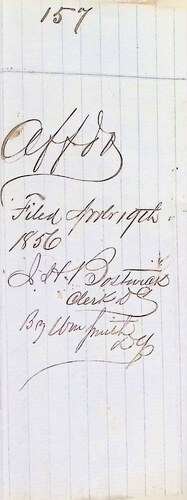 157
Affdv
Filed Novr 19th
1856
J. H. Bostwick
Clerk DC
By Wm Smith
Dy